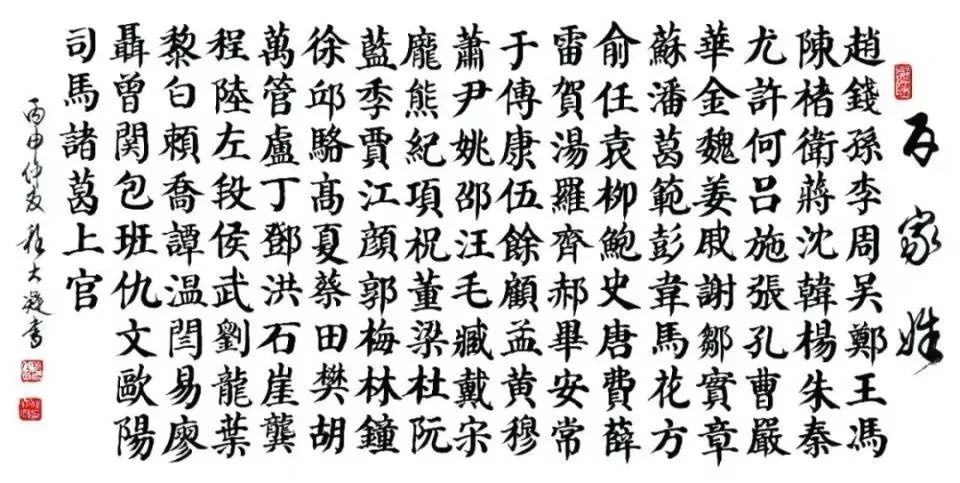 百家姓
趙錢孫李周吳鄭王馮
陳楮衛蔣沈韓楊朱秦
尤許何呂施張孔曹嚴
華金魏姜戚謝鄒實章
蘇潘葛範彭韋馬花方
俞任袁柳鮑史唐費薛
雷賀湯羅齊郝畢安常
于傅康伍餘顧孟黃穆
蕭尹姚邵汪毛臧戴宋
龐熊紀項祝董梁杜阮
藍季賈江顏郭梅林鐘
徐邱駱髙夏蔡田樊胡
萬管盧丁鄧洪石崖龔
程陸左段侯武劉龍葉
黎白賴喬譚温閆易廖
聶曾関包班仇文歐陽
司馬諸葛上官
丙申仲夏程大凝書